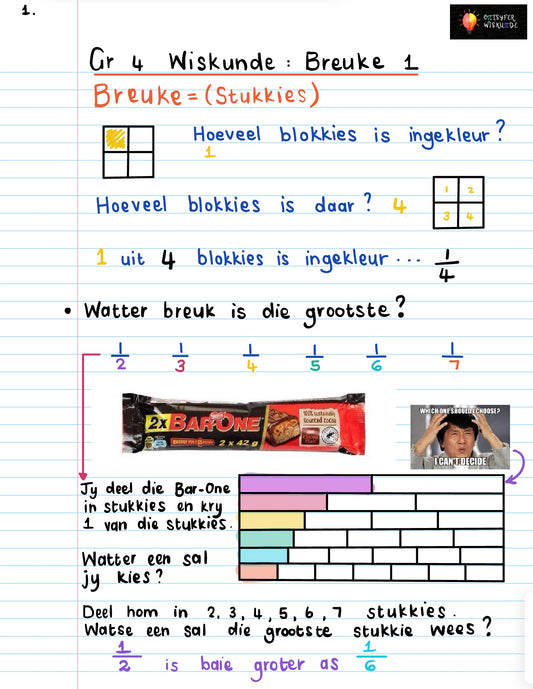 1.
ONTSYFER
WISKUNDE
Gr 4 Wiskunde : Breuke 1
Breuke = (Stukkies)
Hoeveel blokkies is ingekleur?
1
Hoeveel blokkies is daar? 4
1 2
3 4
1 uit 4 blokkies is ingekleur... 1/4
• Watter breuk is die grootste?
1/2 1/3 1/4 1/5 1/6 1/7
2X BAR•ONE
100% sustainably sourced cocoa
2 x 42 g
WHICH ONE SHOULD I CHOOSE?
I CAN'T DECIDE
Jy deel die Bar-One
in stukkies en kry
1 van die stukkies.
Watter een sal
jy kies?
Deel hom in 2, 3, 4, 5, 6, 7 stukkies.
Watse een sal die grootste stukkie wees?
1/2 is baie groter as 1/6